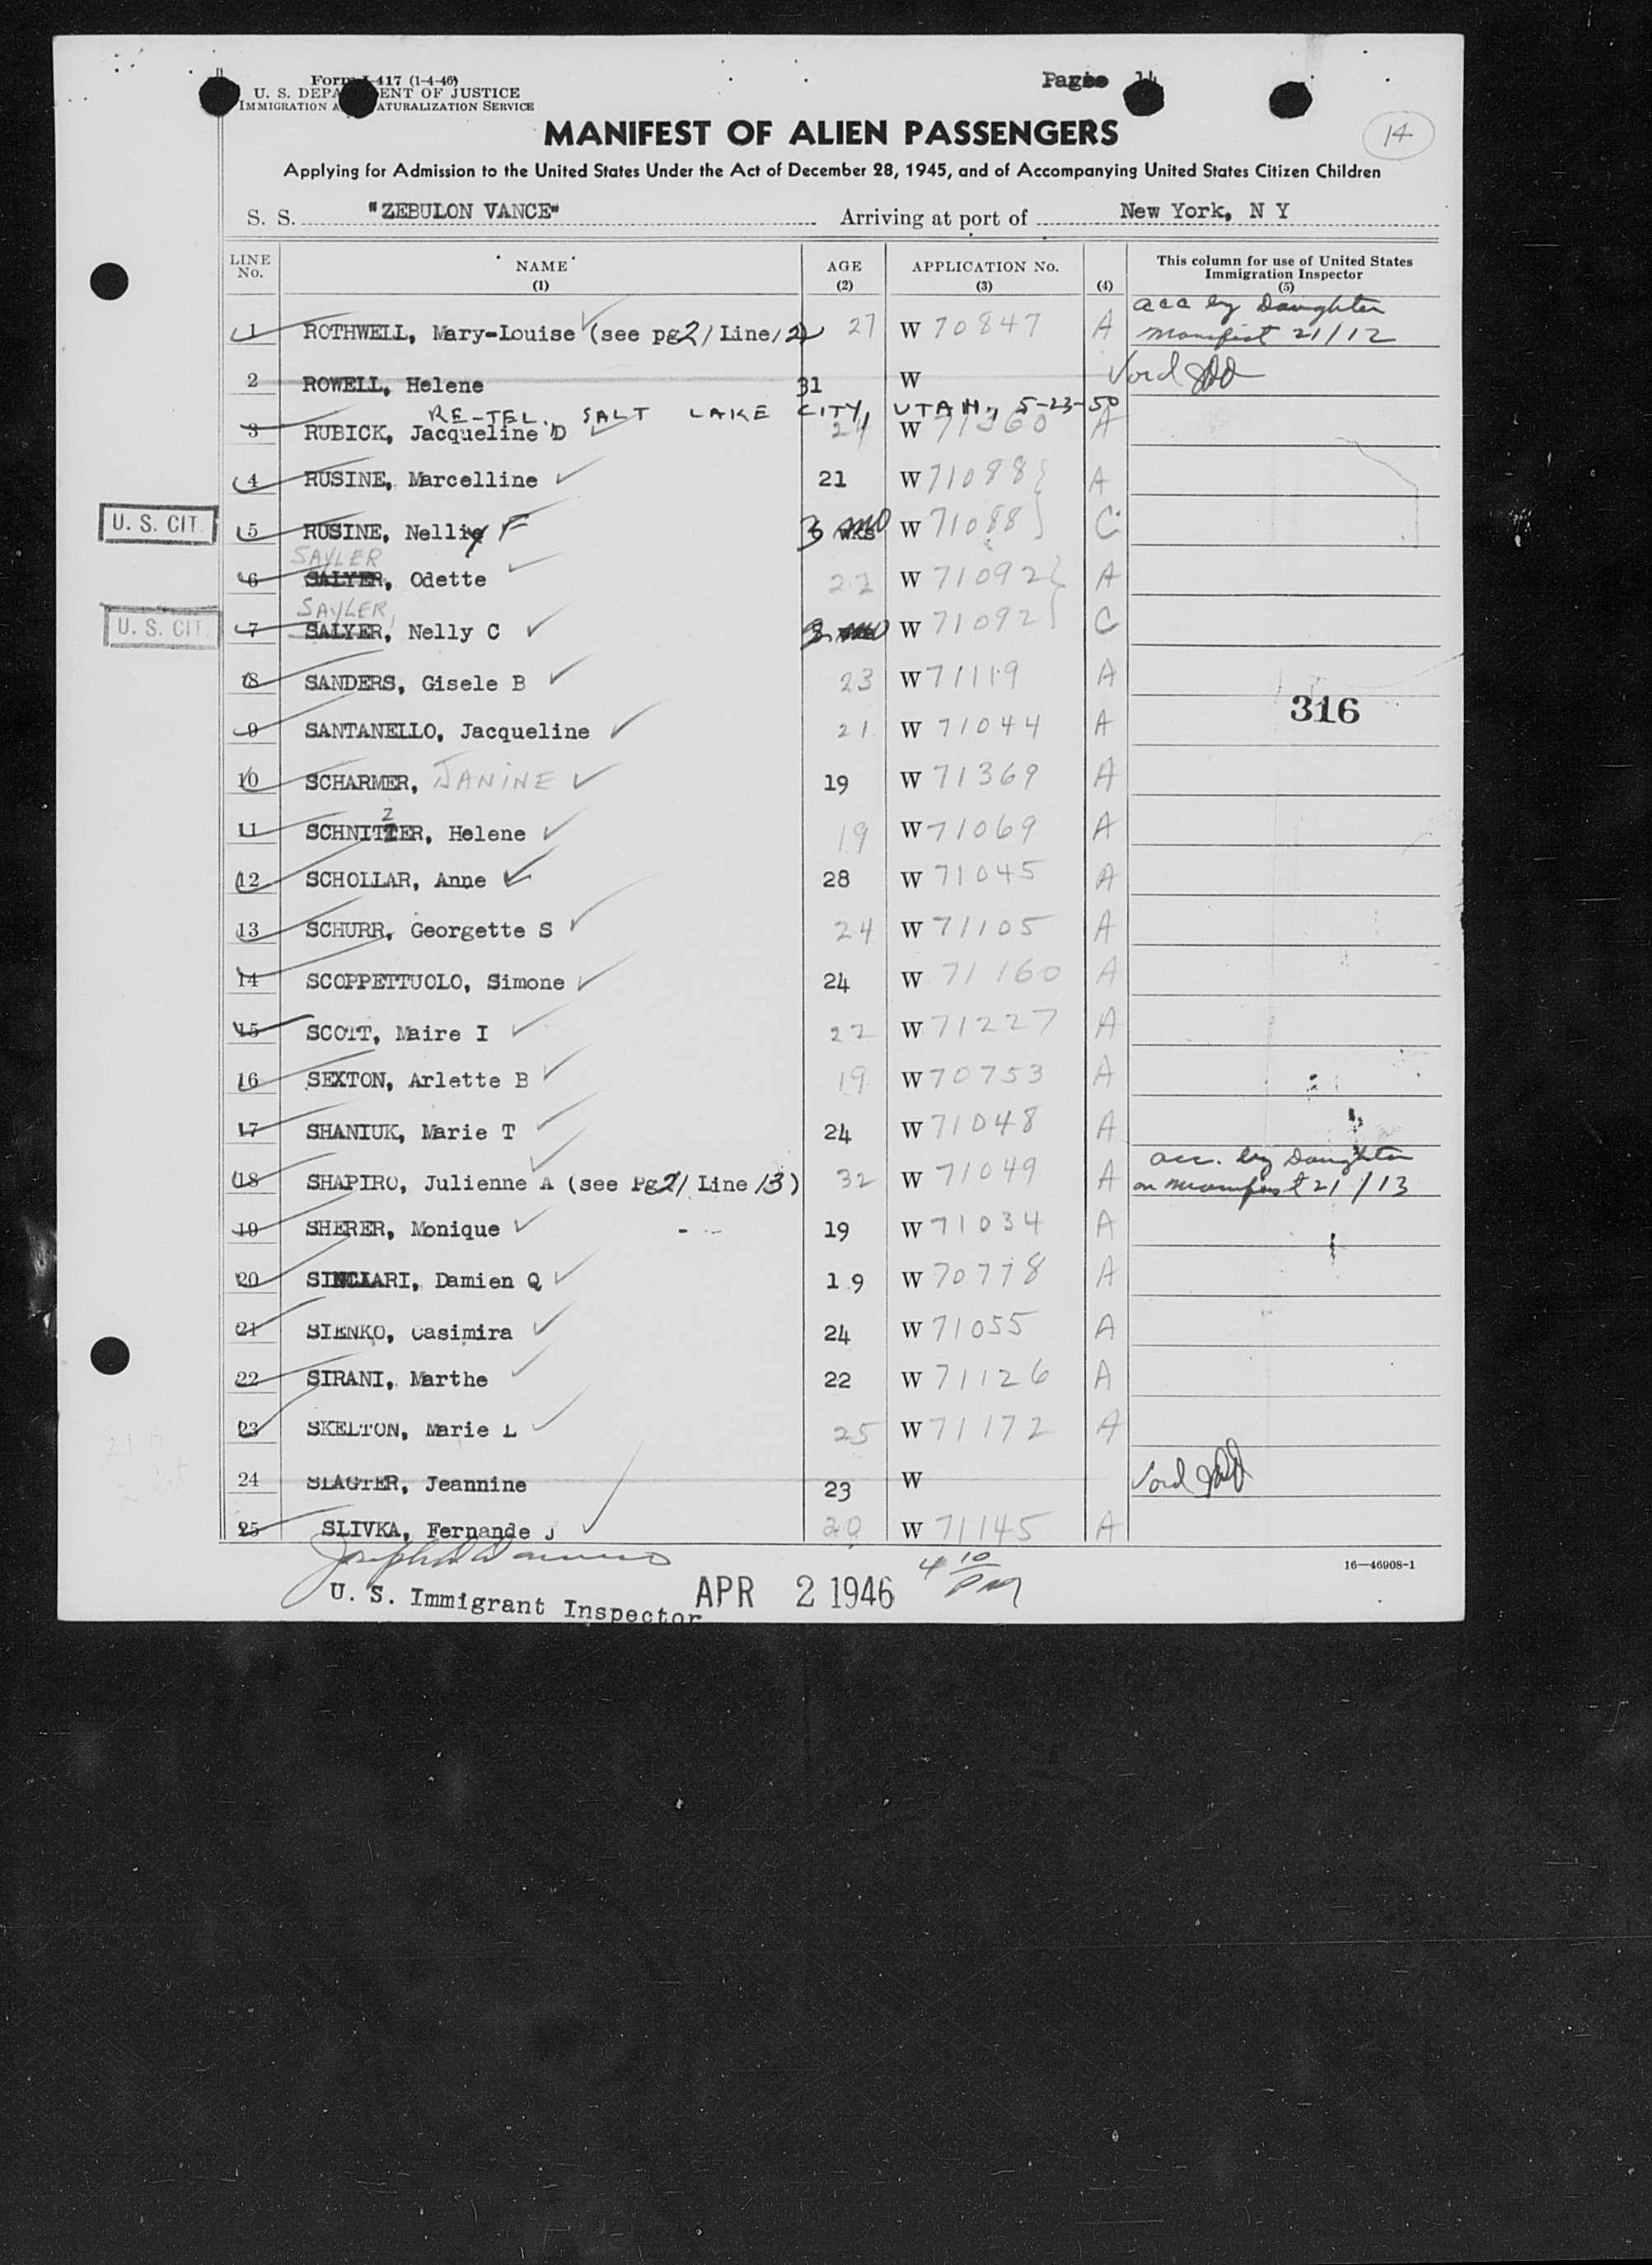 Form I-417 (1-4-46)
U. S. DEPARTMENT OF JUSTICE
IMMIGRATION AND NATURALIZATION SERVICE
Page 14
14
MANIFEST OF ALIEN PASSENGERS
Applying for Admission to the United States Under the Act of December 28, 1945, and of Accompanying United States Citizen Children
S. S. "ZEBULON VANCE" Arriving at port of New York, N Y
LINE No. NAME (1) AGE (2) APPLICATION No. (3) (4) This column for use of United States Immigration Inspector (5)
acc by Daughter
1 ROTHWELL, Mary-Louise (see pg 21 Line 12) 27 W 70847 A Manifest 21/12
2 ROWELL, Helene 31 W Void
RE-TEL. SALT LAKE CITY, UTAH, 5-23-50
3 RUBICK, Jacqueline D 24 W 71360 A
4 RUSINE, Marcelline 21 W 71088 A
U. S. CIT. 5 RUSINE, Nelly F 3 mo W 71088 C
SAYLER
6 SALYER, Odette 22 W 71092 A
SAYLER,
U. S. CIT. 7 SALYER, Nelly C W 71092 C
8 SANDERS, Gisele B 23 W 71119 A
316
9 SANTANELLO, Jacqueline 21 W 71044 A
10 SCHARMER, JANINE 19 W 71369 A
11 SCHNITZER, Helene 19 W 71069 A
12 SCHOLLAR, Anne 28 W 71045 A
13 SCHURR, Georgette S 24 W 71105 A
14 SCOPPETTUOLO, Simone 24 W 71160 A
15 SCOTT, Maire I 22 W 71227 A
16 SEXTON, Arlette B 19 W 70753 A
17 SHANIUK, Marie T 24 W 71048 A
acc. by Daughter
18 SHAPIRO, Julienne A (see Pg 21 Line 13) 32 W 71049 A on manifest 21/13
19 SHERER, Monique - -- 19 W 71034 A
20 SINCLARI, Damien Q 19 W 70778 A
21 SIENKO, Casimira 24 W 71055 A
22 SIRANI, Marthe 22 W 71126 A
23 SKELTON, Marie L 25 W 71172 A
24 SLAGTER, Jeannine 23 W Void
25 SLIVKA, Fernande J 20 W 71145 A
16—46908-1
U. S. Immigrant Inspector APR 2 1946 4 10 PM